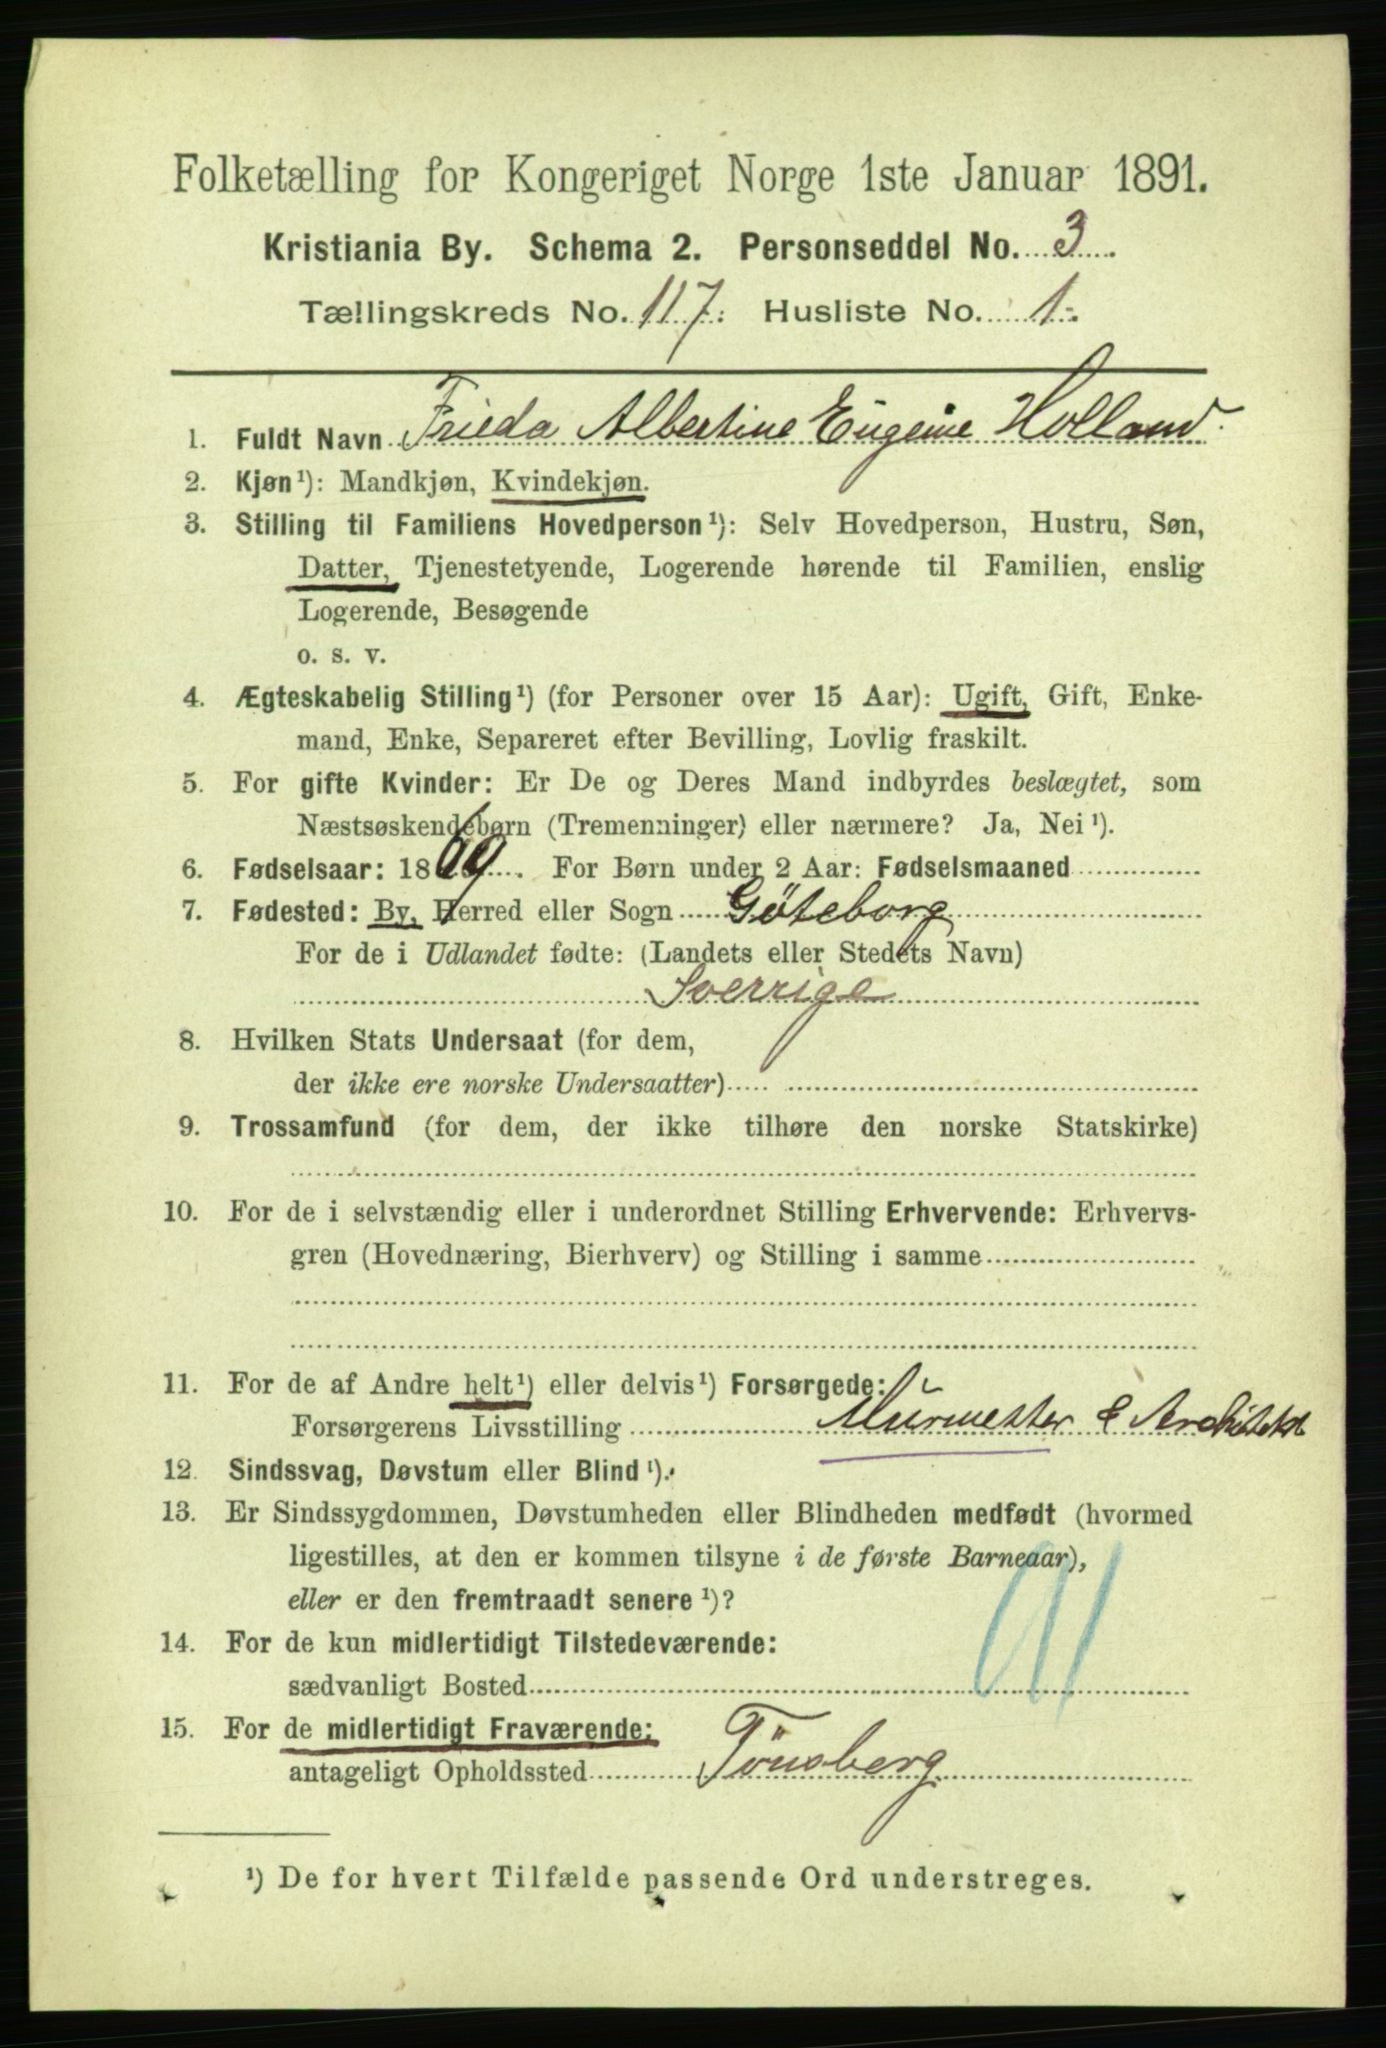 Folketælling for Kongeriget Norge 1ste Januar 1891.
Kristiania By. Schema 2. Personseddel No. 3
Tællingskreds No. 117. Husliste No. 1.
1. Fuldt Navn Frieda Albertine Eugenie Holland.
2. Kjøn¹): Mandkjøn, Kvindekjøn.
3. Stilling til Familiens Hovedperson¹): Selv Hovedperson, Hustru, Søn,
Datter, Tjenestetyende, Logerende hørende til Familien, enslig
Logerende, Besøgende
o. s. v.
4. Ægteskabelig Stilling¹) (for Personer over 15 Aar): Ugift, Gift, Enke-
mand, Enke, Separeret efter Bevilling, Lovlig fraskilt.
5. For gifte Kvinder: Er De og Deres Mand indbyrdes beslægtet, som
Næstsøskendebørn (Tremenninger) eller nærmere? Ja, Nei¹).
6. Fødselsaar: 1869. For Børn under 2 Aar: Fødselsmaaned
7. Fødested: By, Herred eller Sogn Göteborg
For de i Udlandet fødte: (Landets eller Stedets Navn)
Sverrige
8. Hvilken Stats Undersaat (for dem,
der ikke ere norske Undersaatter)
9. Trossamfund (for dem, der ikke tilhøre den norske Statskirke)
10. For de i selvstændig eller i underordnet Stilling Erhvervende: Erhvervs-
gren (Hovednæring, Bierhverv) og Stilling i samme
11. For de af Andre helt¹) eller delvis¹) Forsørgede:
Forsørgerens Livsstilling Murmester & Architekt
12. Sindssvag, Døvstum eller Blind¹).
13. Er Sindssygdommen, Døvstumheden eller Blindheden medfødt (hvormed
ligestilles, at den er kommen tilsyne i de første Barneaar),
eller er den fremtraadt senere¹)?
91
14. For de kun midlertidigt Tilstedeværende:
sædvanligt Bosted
15. For de midlertidigt Fraværende:
antageligt Opholdssted Tönsberg
¹) De for hvert Tilfælde passende Ord understreges.